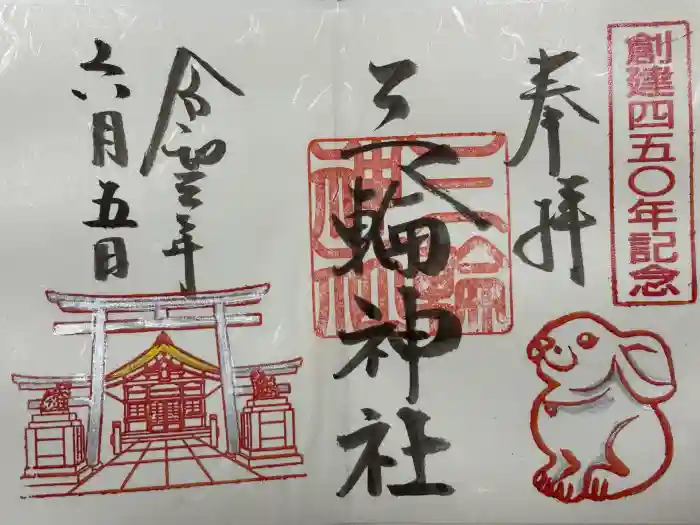 創建四五〇年記念
奉拝
三輪神社
三輪神社
令和三年
六月五日